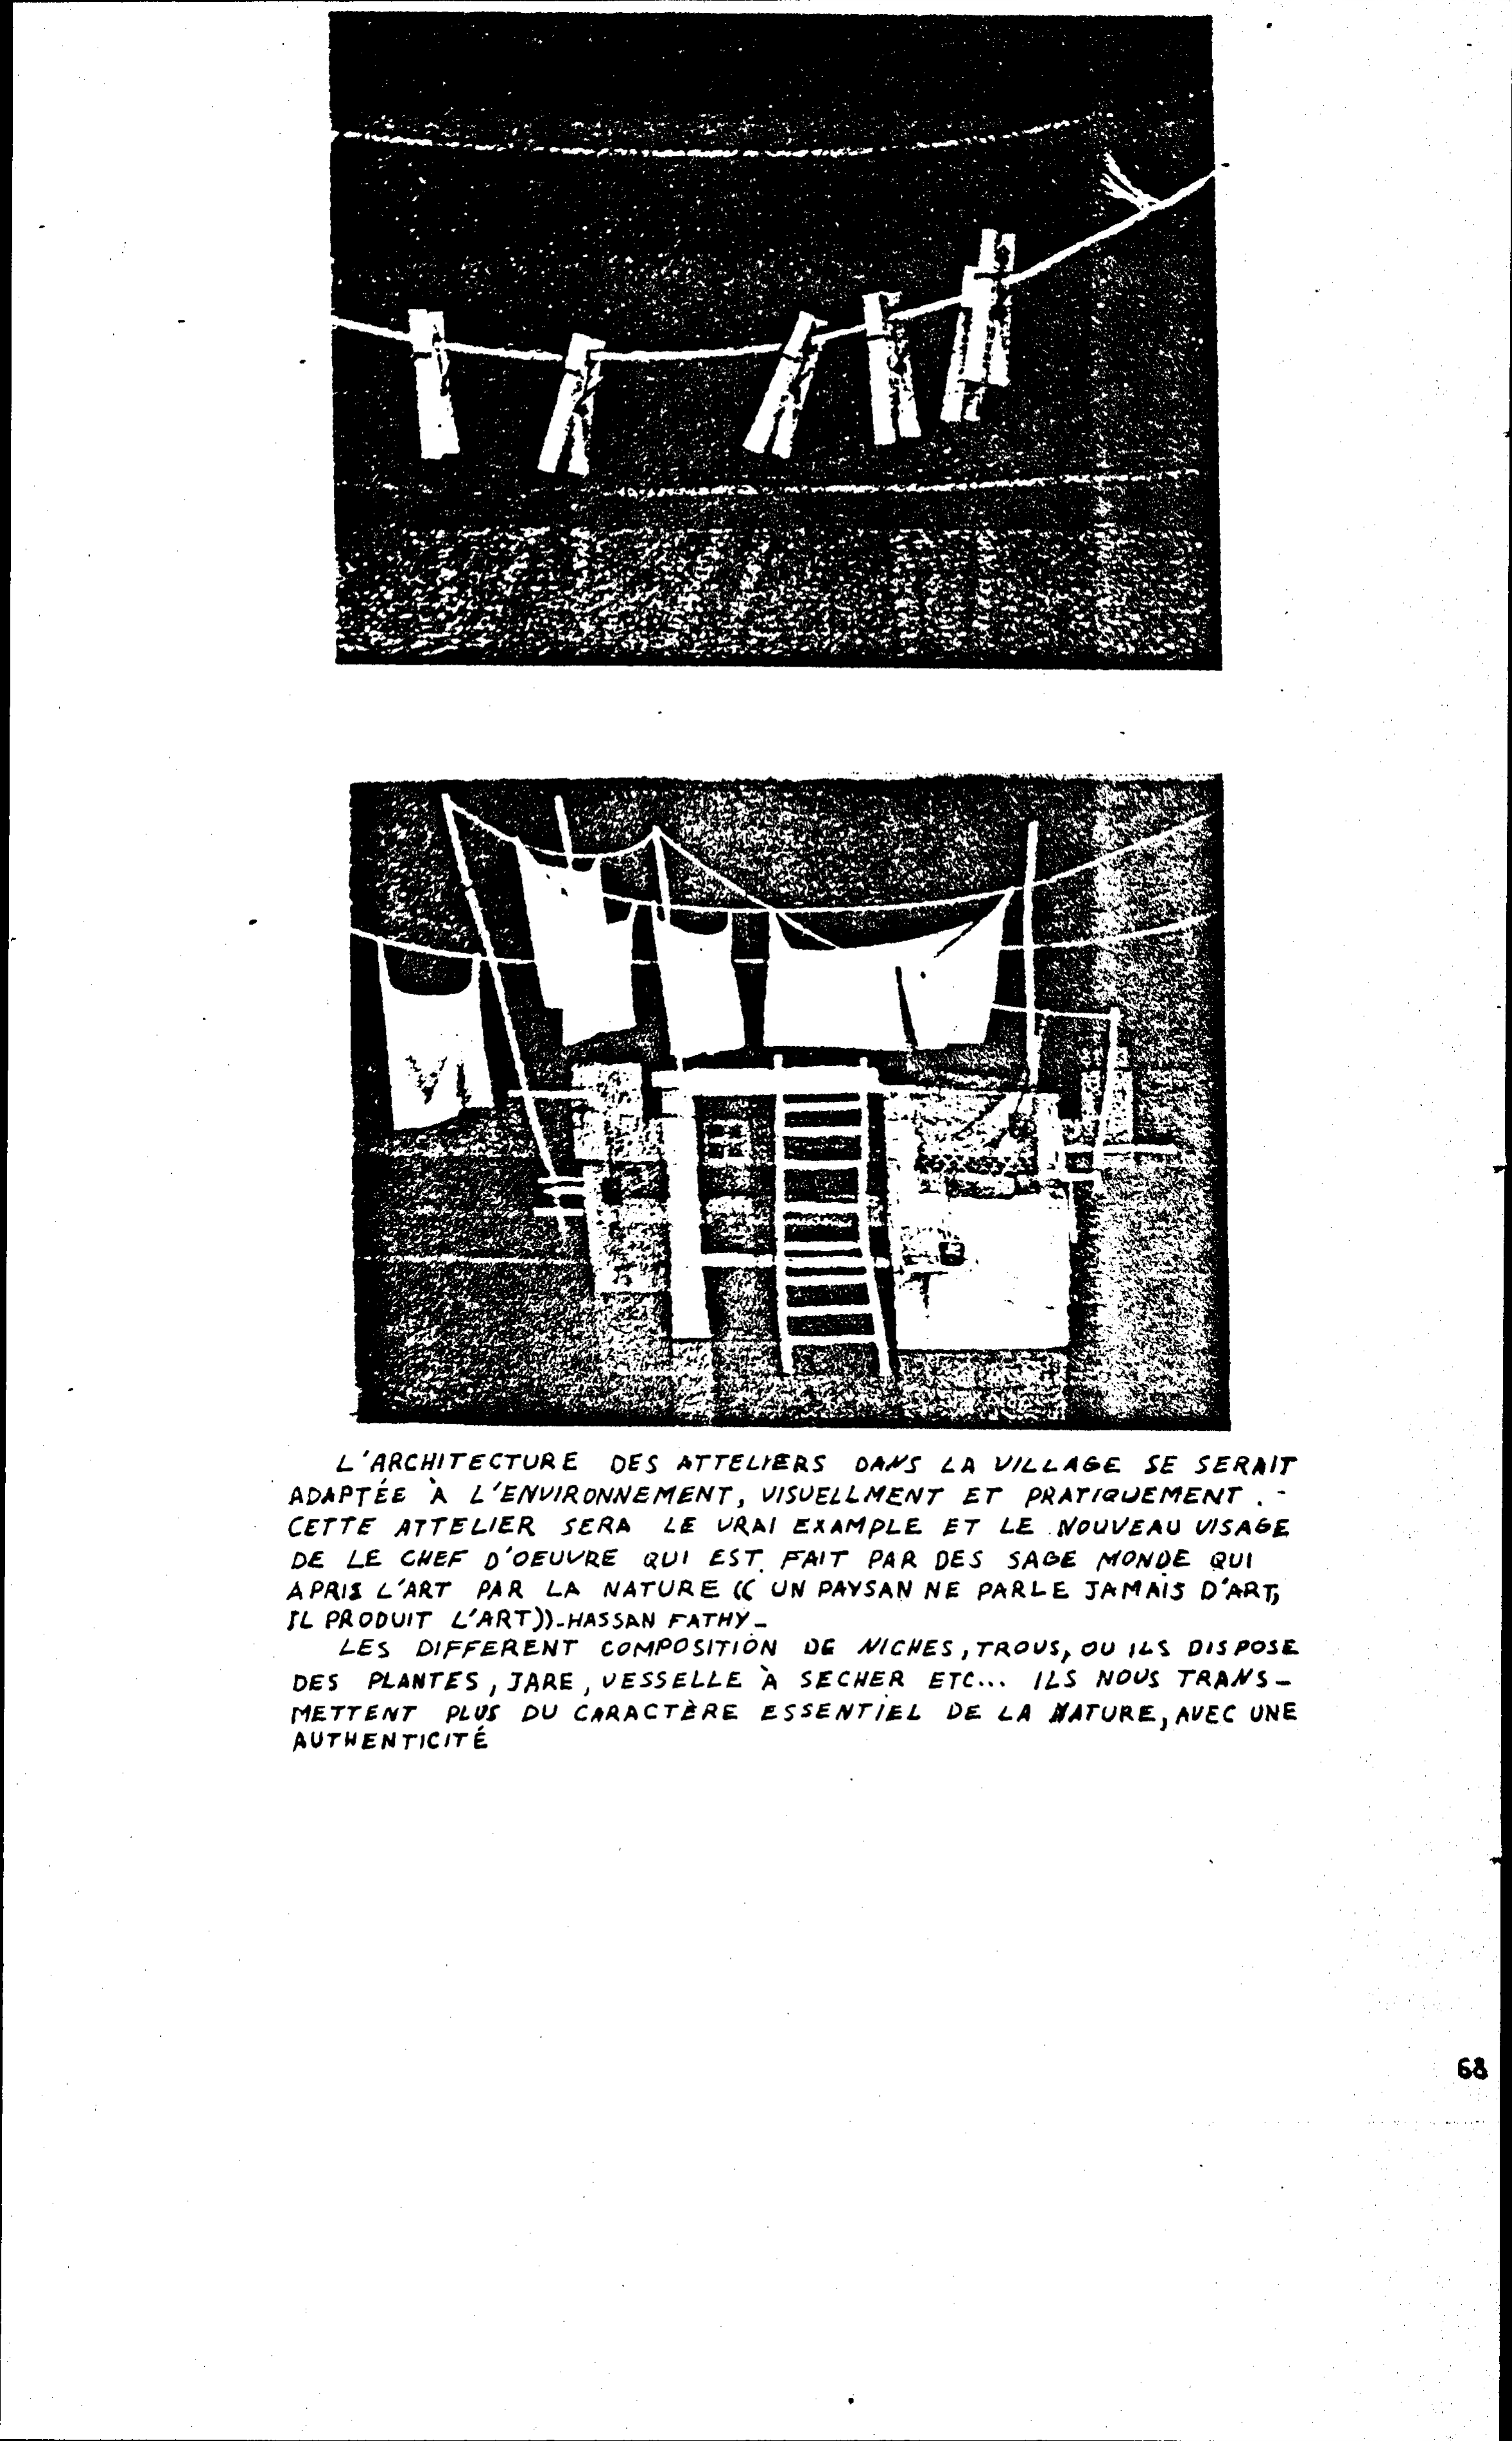 L'ARCHITECTURE DES ATTELIERS DANS LA VILLAGE SE SERAIT
ADAPTÉE À L'ENVIRONNEMENT, VISUELLMENT ET PRATIQUEMENT. -
CETTE ATTELIER SERA LE VRAI EXAMPLE ET LE NOUVEAU VISAGE
DE LE CHEF D'OEUVRE QUI EST FAIT PAR DES SAGE MONDE QUI
APRIS L'ART PAR LA NATURE (( UN PAYSAN NE PARLE JAMAIS D'ART,
IL PRODUIT L'ART))-HASSAN FATHY-
LES DIFFERENT COMPOSITION DE NICHES, TROUS, OU ILS DISPOSE
DES PLANTES, JARE, VESSELLE À SECHER ETC... ILS NOUS TRANS-
METTENT PLUS DU CARACTÈRE ESSENTIEL DE LA NATURE, AVEC UNE
AUTHENTICITÉ
68